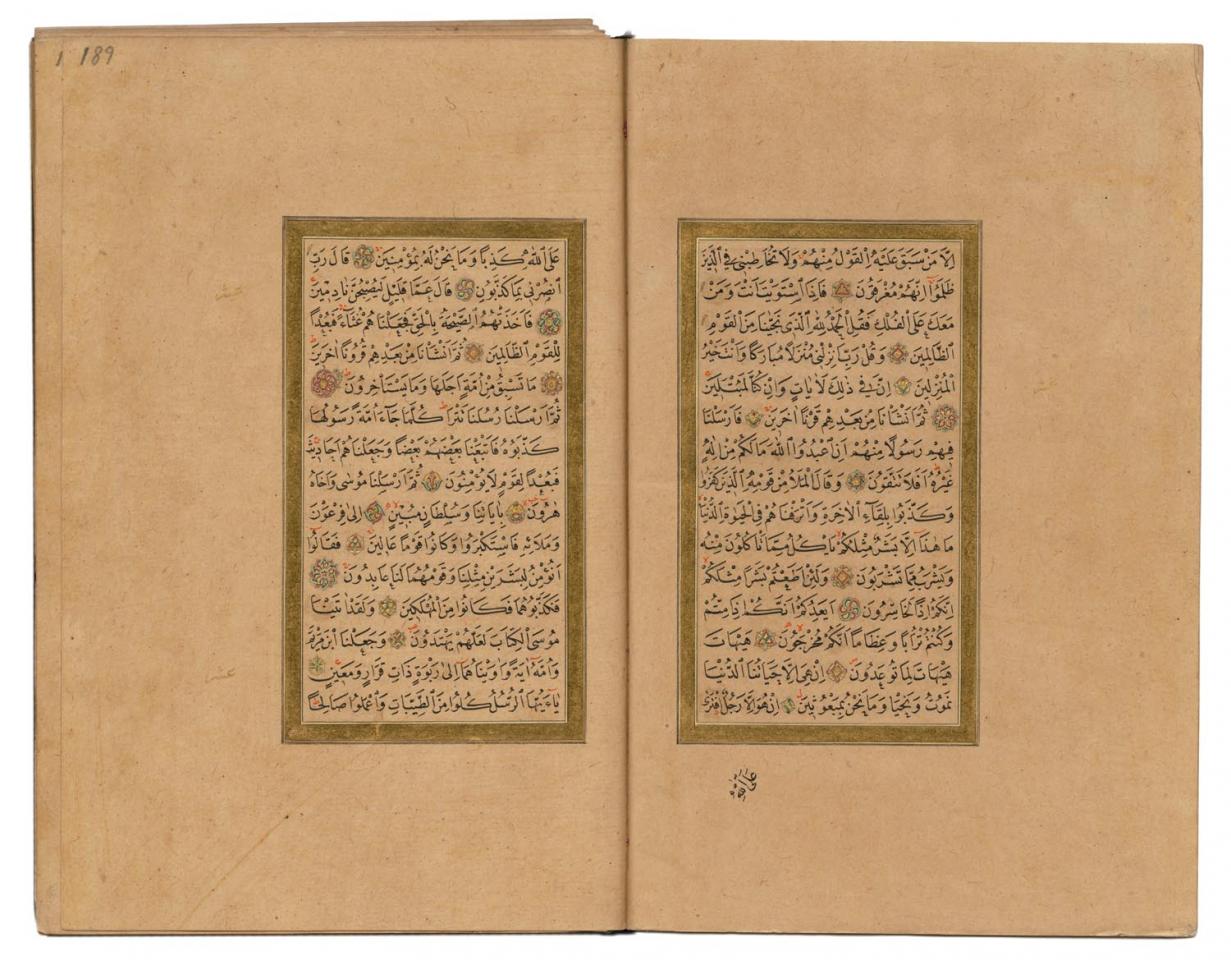 اِلَّا مَنْ سَبَقَ عَلَيْهِ الْقَوْلُ مِنْهُمْ وَلَا تُخَاطِبْنِي فِي الَّذِينَ
ظَلَمُوا اِنَّهُمْ مُغْرَقُونَ فَاِذَا اسْتَوَيْتَ اَنْتَ وَمَنْ
مَعَكَ عَلَى الْفُلْكِ فَقُلِ الْحَمْدُ لِلّٰهِ الَّذِي نَجّٰينَا مِنَ الْقَوْمِ
الظَّالِمِينَ وَقُلْ رَبِّ اَنْزِلْنِي مُنْزَلًا مُبَارَكًا وَاَنْتَ خَيْرُ
الْمُنْزِلِينَ اِنَّ فِي ذٰلِكَ لَاٰيَاتٍ وَاِنْ كُنَّا لَمُبْتَلِينَ
ثُمَّ اَنْشَأْنَا مِنْ بَعْدِهِمْ قَرْنًا اٰخَرِينَ فَاَرْسَلْنَا
فِيهِمْ رَسُولًا مِنْهُمْ اَنِ اعْبُدُوا اللّٰهَ مَا لَكُمْ مِنْ اِلٰهٍ
غَيْرُهُ اَفَلَا تَتَّقُونَ وَقَالَ الْمَلَأُ مِنْ قَوْمِهِ الَّذِينَ كَفَرُوا
وَكَذَّبُوا بِلِقَاءِ الْاٰخِرَةِ وَاَتْرَفْنَاهُمْ فِي الْحَيٰوةِ الدُّنْيَا
مَا هٰذَا اِلَّا بَشَرٌ مِثْلُكُمْ يَأْكُلُ مِمَّا تَأْكُلُونَ مِنْهُ
وَيَشْرَبُ مِمَّا تَشْرَبُونَ وَلَئِنْ اَطَعْتُمْ بَشَرًا مِثْلَكُمْ
اِنَّكُمْ اِذًا لَخَاسِرُونَ اَيَعِدُكُمْ اَنَّكُمْ اِذَا مِتُّمْ
وَكُنْتُمْ تُرَابًا وَعِظَامًا اَنَّكُمْ مُخْرَجُونَ هَيْهَاتَ
هَيْهَاتَ لِمَا تُوعَدُونَ اِنْ هِيَ اِلَّا حَيَاتُنَا الدُّنْيَا
نَمُوتُ وَنَحْيَا وَمَا نَحْنُ بِمَبْعُوثِينَ اِنْ هُوَ اِلَّا رَجُلٌ افْتَرٰى
عَلَى اللّٰهِ
1 189
عَلَى اللّٰهِ كَذِبًا وَمَا نَحْنُ لَهُ بِمُؤْمِنِينَ قَالَ رَبِّ
انْصُرْنِي بِمَا كَذَّبُونِ قَالَ عَمَّا قَلِيلٍ لَيُصْبِحُنَّ نَادِمِينَ
فَاَخَذَتْهُمُ الصَّيْحَةُ بِالْحَقِّ فَجَعَلْنَاهُمْ غُثَاءً فَبُعْدًا
لِلْقَوْمِ الظَّالِمِينَ ثُمَّ اَنْشَأْنَا مِنْ بَعْدِهِمْ قُرُونًا اٰخَرِينَ
مَا تَسْبِقُ مِنْ اُمَّةٍ اَجَلَهَا وَمَا يَسْتَأْخِرُونَ
ثُمَّ اَرْسَلْنَا رُسُلَنَا تَتْرَا كُلَّمَا جَاءَ اُمَّةً رَسُولُهَا
كَذَّبُوهُ فَاَتْبَعْنَا بَعْضَهُمْ بَعْضًا وَجَعَلْنَاهُمْ اَحَادِيثَ
فَبُعْدًا لِقَوْمٍ لَا يُؤْمِنُونَ ثُمَّ اَرْسَلْنَا مُوسٰى وَاَخَاهُ
هٰرُونَ بِاٰيَاتِنَا وَسُلْطَانٍ مُبِينٍ اِلٰى فِرْعَوْنَ
وَمَلَائِهِ فَاسْتَكْبَرُوا وَكَانُوا قَوْمًا عَالِينَ فَقَالُوا
اَنُؤْمِنُ لِبَشَرَيْنِ مِثْلِنَا وَقَوْمُهُمَا لَنَا عَابِدُونَ
فَكَذَّبُوهُمَا فَكَانُوا مِنَ الْمُهْلَكِينَ وَلَقَدْ اٰتَيْنَا
مُوسَى الْكِتَابَ لَعَلَّهُمْ يَهْتَدُونَ وَجَعَلْنَا ابْنَ مَرْيَمَ
وَاُمَّهُ اٰيَةً وَاٰوَيْنَاهُمَا اِلٰى رَبْوَةٍ ذَاتِ قَرَارٍ وَمَعِينٍ
يَاءَيُّهَا الرُّسُلُ كُلُوا مِنَ الطَّيِّبَاتِ وَاعْمَلُوا صَالِحًا